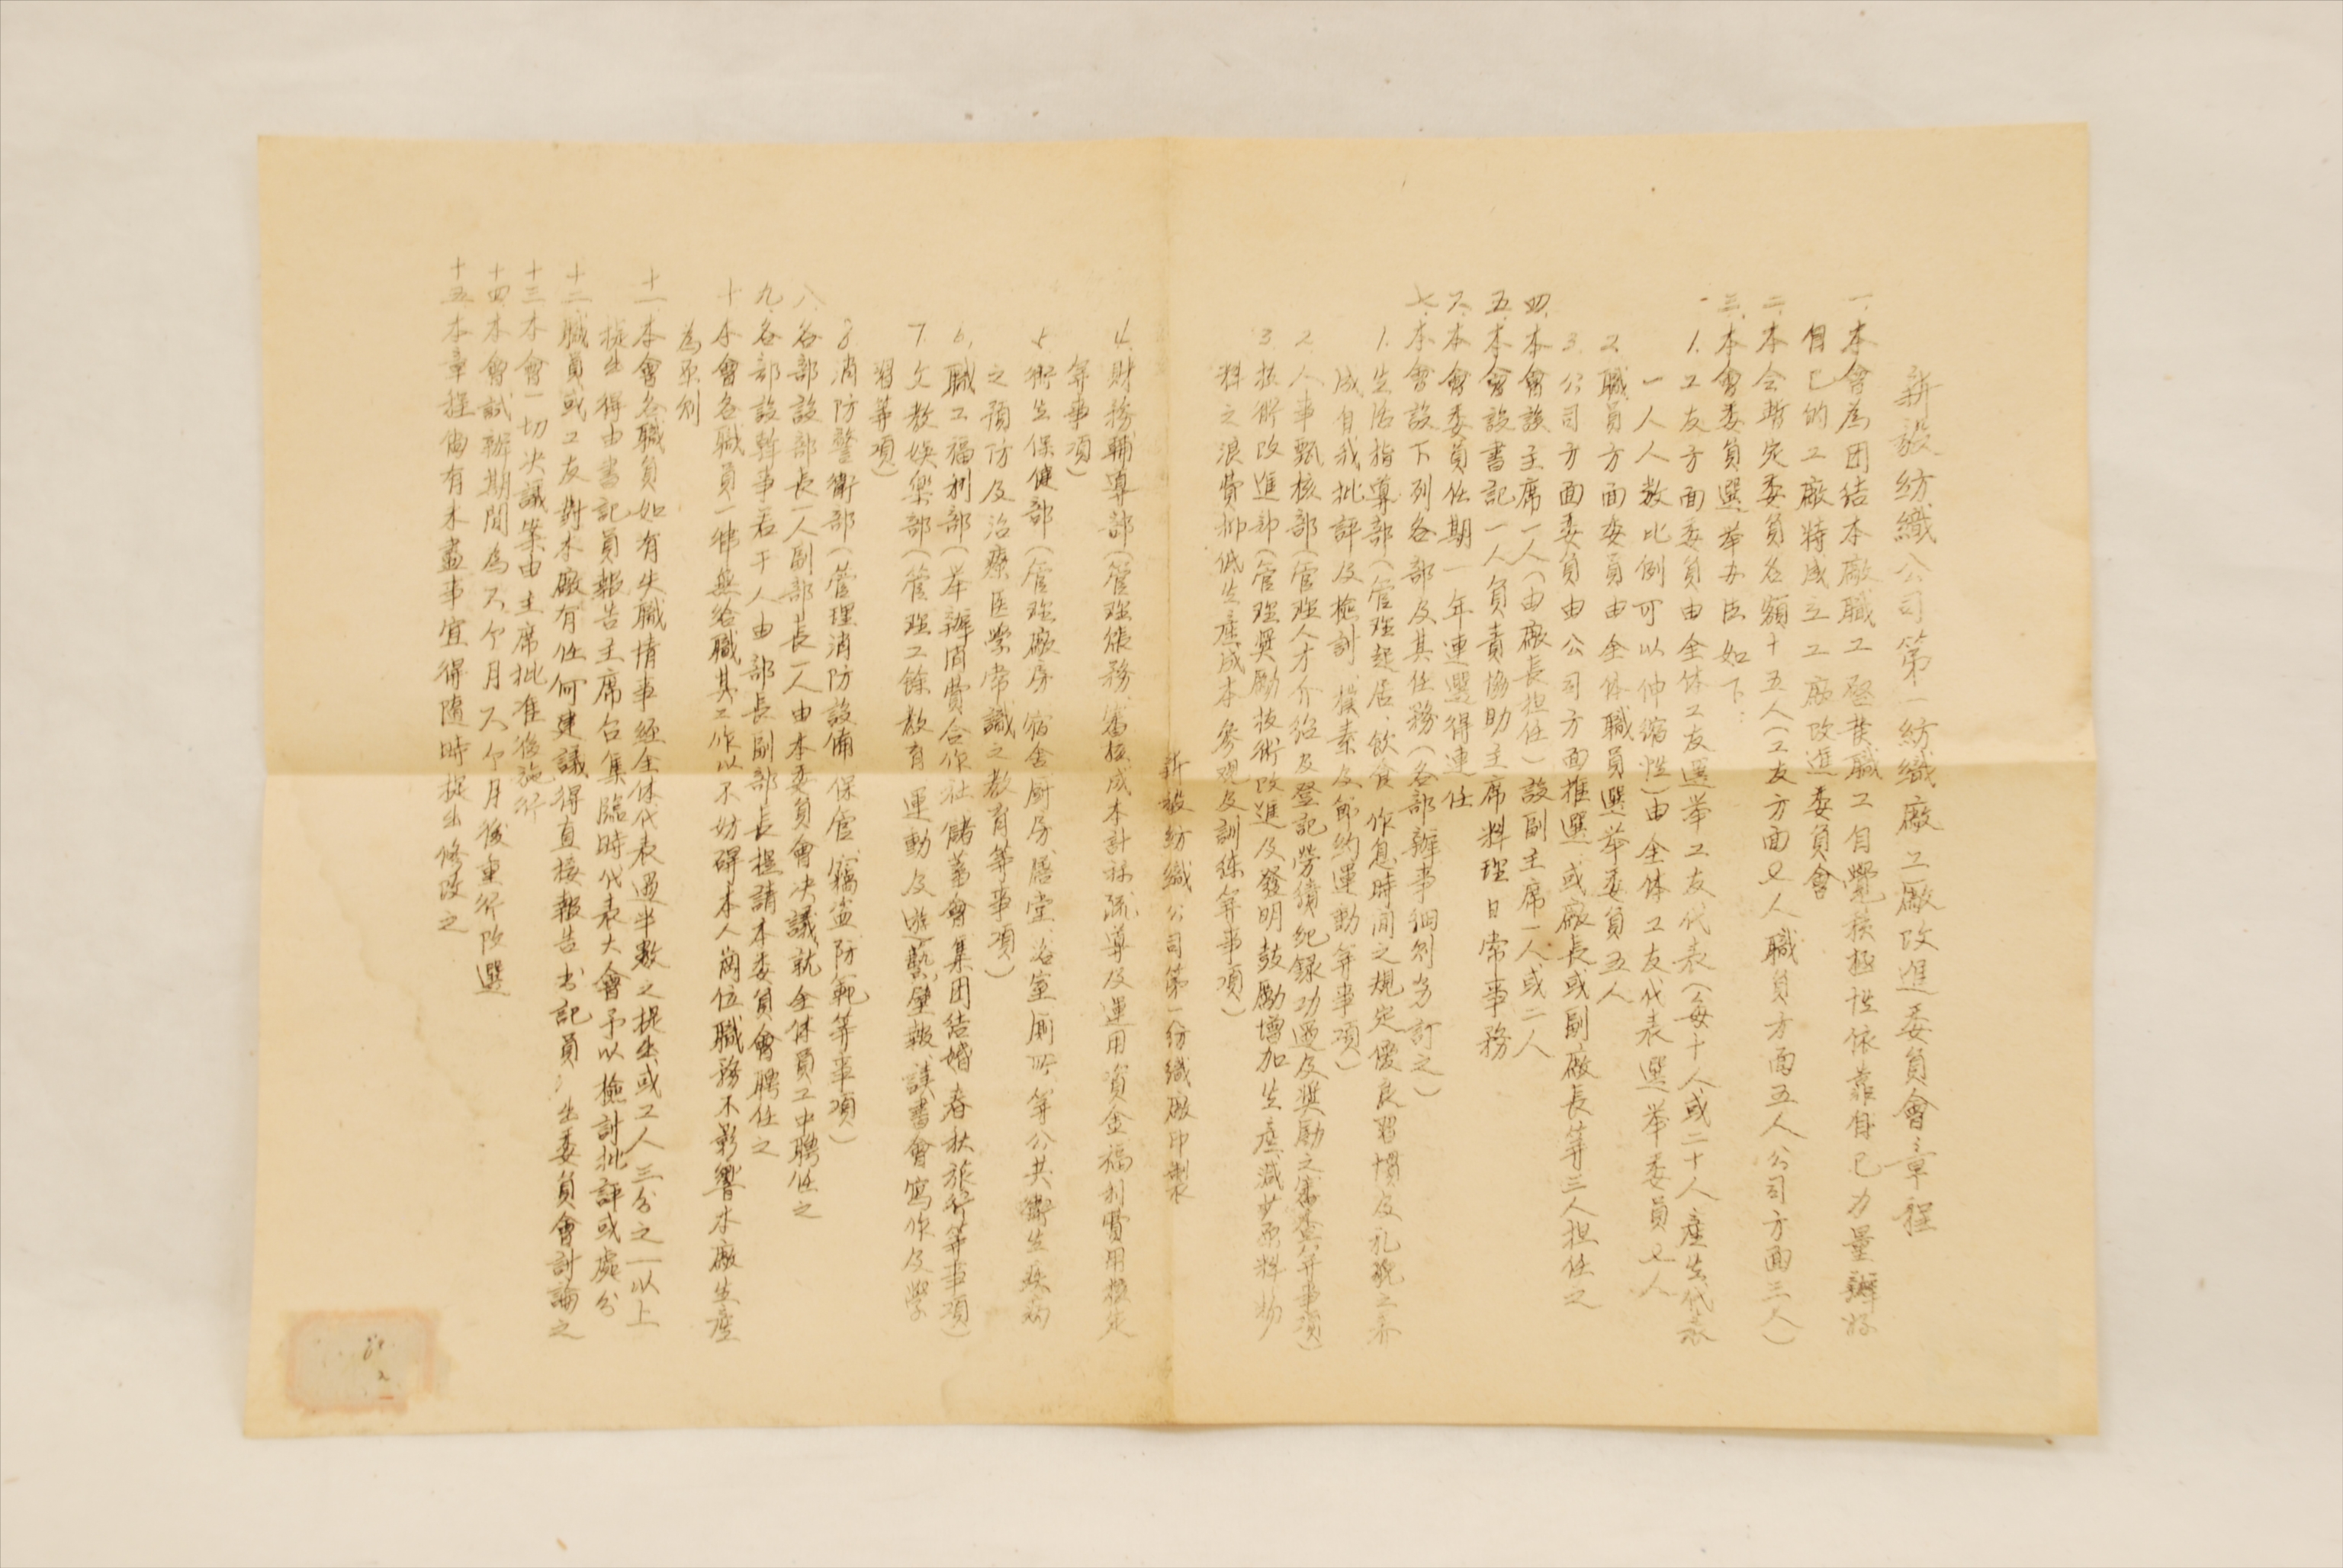 新毅紡織公司第一紡織廠工廠改進委員會章程
一.本會為团結本廠職工啓發職工自覺積極性依靠自已力量辦好
自已的工廠特成立工廠改進委員會
二.本会暫定委員名額十五人(工友方面七人職員方面五人公司方面三人)
三.本會委員選举办法如下:
1.工友方面委員由全体工友選举工友代表(每十人或二十人產生代表
一人人数比例可以伸缩性)由全体工友代表選举委員七人
2.職員方面委員由全体職員選举委員五人
3.公司方面委員由公司方面推選.或廠長或副廠長等三人担任之
四.本會設主席一人(由廠長担任)設副主席一人或二人
五.本會設書記一人負責協助主席料理日常事務
六.本會委員任期一年連選得連任
七.本會設下列各部及其任務(各部辦事細則另訂之)
1.生活指導部(管理起居.飲食.作息時间之規定優良習慣及礼貌之养
成自我批評及檢討.樸素及節約運動等事項)
2.人事甄核部(管理人才介绍及登記勞績纪録功過及奖励之審查等事項)
3.技術改進部(管理奖励技術改進及發明鼓励增加生產减少原料物
料之浪費抑低生產成本参观及訓练等事項)
新毅紡織公司第一紡織廠印製
4.財務輔導部(管理賬務.審核成本計祘疏導及運用資金福利費用核定
等事項)
5.衛生保健部(管理廠房.宿舍厨房.膳堂.浴室厠所等公共衛生疾病
之預防及治療医學常識之教育等事項)
6.職工福利部(举辦消費合作社儲蓄會集团结婚春秋旅行等事項)
7.文教娱樂部(管理工餘教育.運動及遊藝壁報.讀書會寫作及學
習等項)
8.消防警衛部(管理消防設備.保管.竊盗防範等事項)
八.各部設部長一人副部長一人由本委員會决議就全体員工中聘任之
九.各部設幹事若干人由部長副部長提請本委員會聘任之
十.本會各職員一律無给職其工作以不妨碍本人崗位職務不影響本廠生產
為原則
十一.本會各職員如有失職情事経全体代表過半數之提出或工人三分之一以上
提出得由書記員報告主席召集臨時代表大會予以檢討批評或處分
十二.職員或工友對本廠有任何建議得直接報告书記員
出委員會討論之
十三.本會一切决議案由主席批准後施行
十四.本會試辦期間為六个月六个月後重行改選
十五.本章程倘有未盡事宜得隨時提出修改之